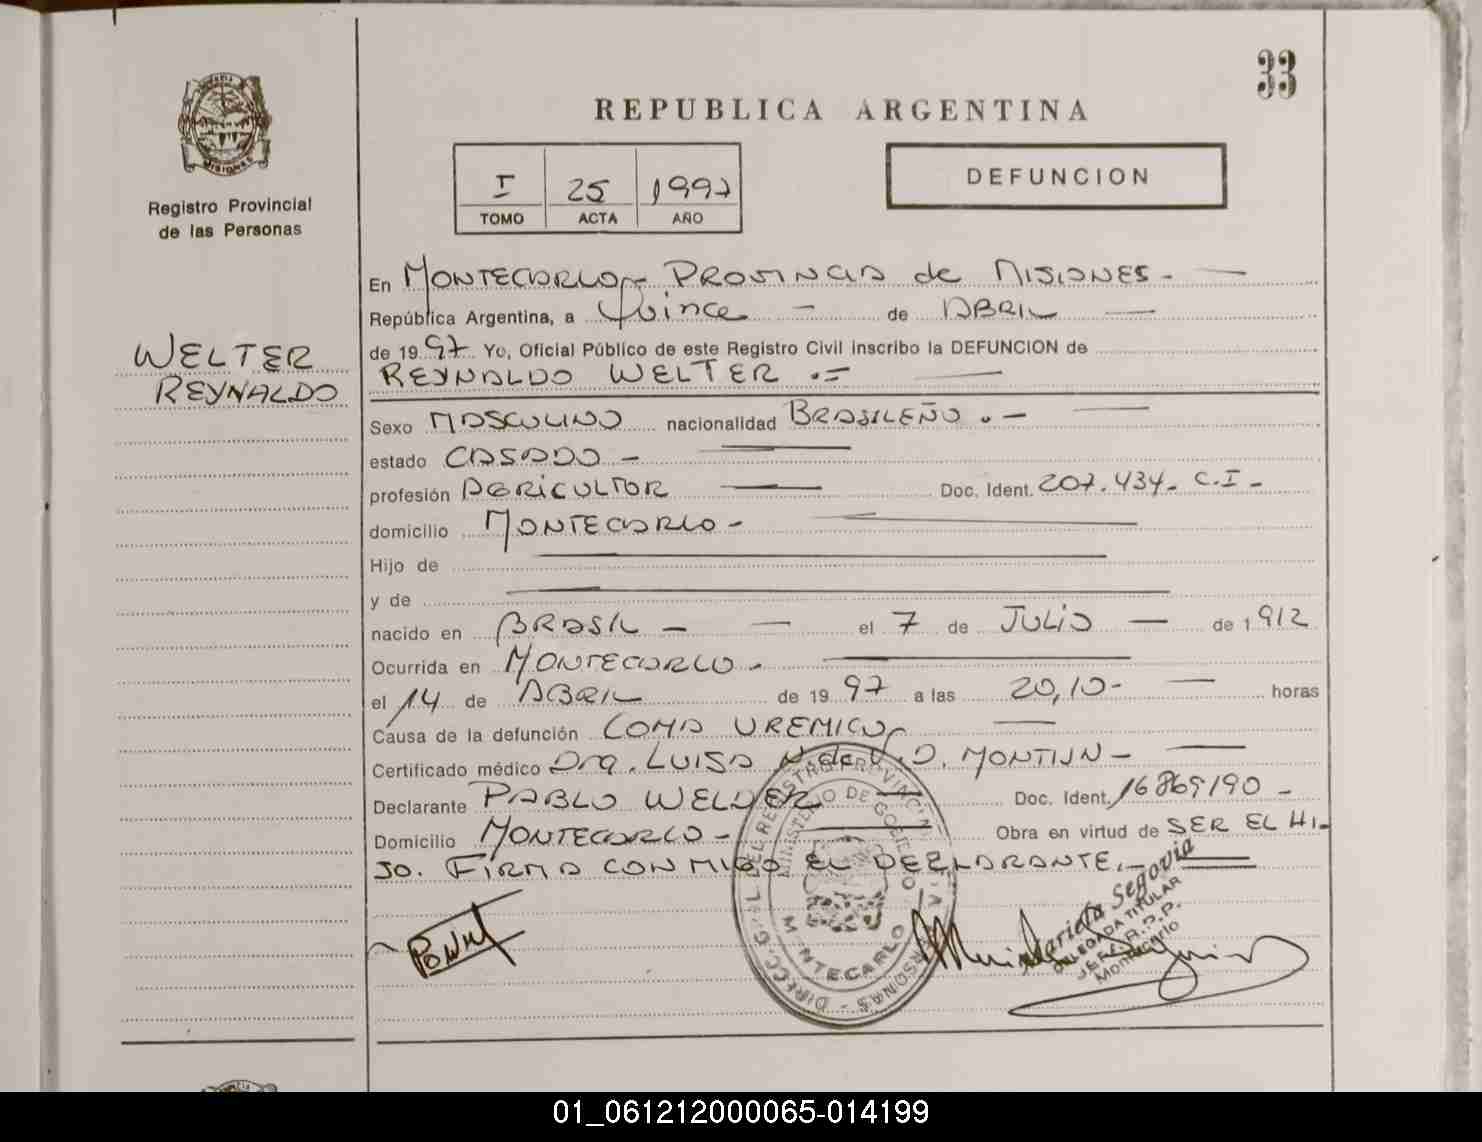 33
REPUBLICA ARGENTINA
I 25 1997
TOMO ACTA AÑO
DEFUNCION
MISIONES
Registro Provincial
de las Personas
WELTER
REYNALDO
En MONTECARLO - PROVINCIA de MISIONES -
República Argentina, a Quince - de ABRIL
de 1997 Yo, Oficial Público de este Registro Civil inscribo la DEFUNCION de
REYNALDO WELTER .=
Sexo MASCULINO nacionalidad BRASILEÑO . -
estado CASADO -
profesión AGRICULTOR Doc. Ident. 207.434 - C.I -
domicilio MONTECARLO -
Hijo de
y de
nacido en BRASIL - el 7 de JULIO - de 1912
Ocurrida en MONTECARLO -
el 14 de ABRIL de 1997 a las 20,10 - horas
Causa de la defunción COMA UREMICO
Certificado médico Dra. LUISA N. de V. D. MONTIJN -
Declarante PABLO WELTER Doc. Ident. 16869190 -
Domicilio MONTECARLO - Obra en virtud de SER EL HI-
JO. FIRMA CONMIGO EL DECLARANTE. -
DIRECC. GRAL. DEL REGISTRO PROVINCIAL PERSONAS
MINISTERIO DE GOBIERNO
MONTECARLO
Marieta Segovia
DELEGADA TITULAR
Montecarlo
01_061212000065-014199